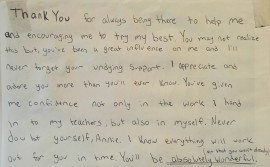 Thank You for always being there to help me
and encouraging me to try my best. You may not realise
this but, you've been a great influence on me and I'll
never forget your undying support. I appreciate and
adore you more than you'll ever know. You've given
me confidence not only in the work I hand
in to my teachers, but also in myself. Never
doubt yourself, Annie. I know everything will work
out for you in time. You'll be absolutely wonderful.
so that you won't